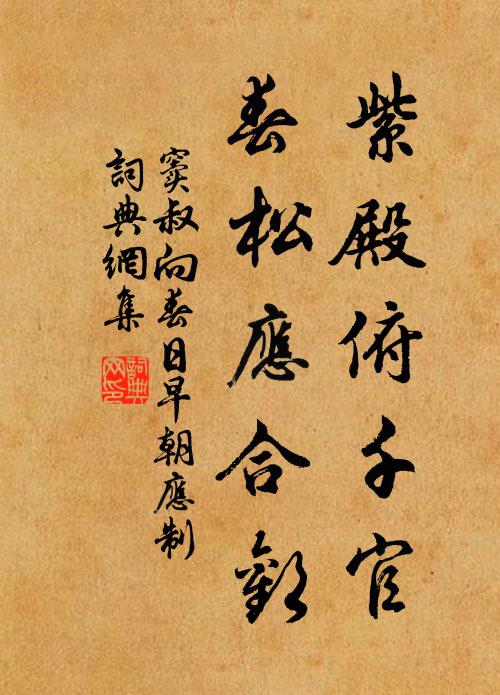 紫殿俯千官
春松應合歡
竇叔向春日早朝應制
詞典網集
詞典
网印